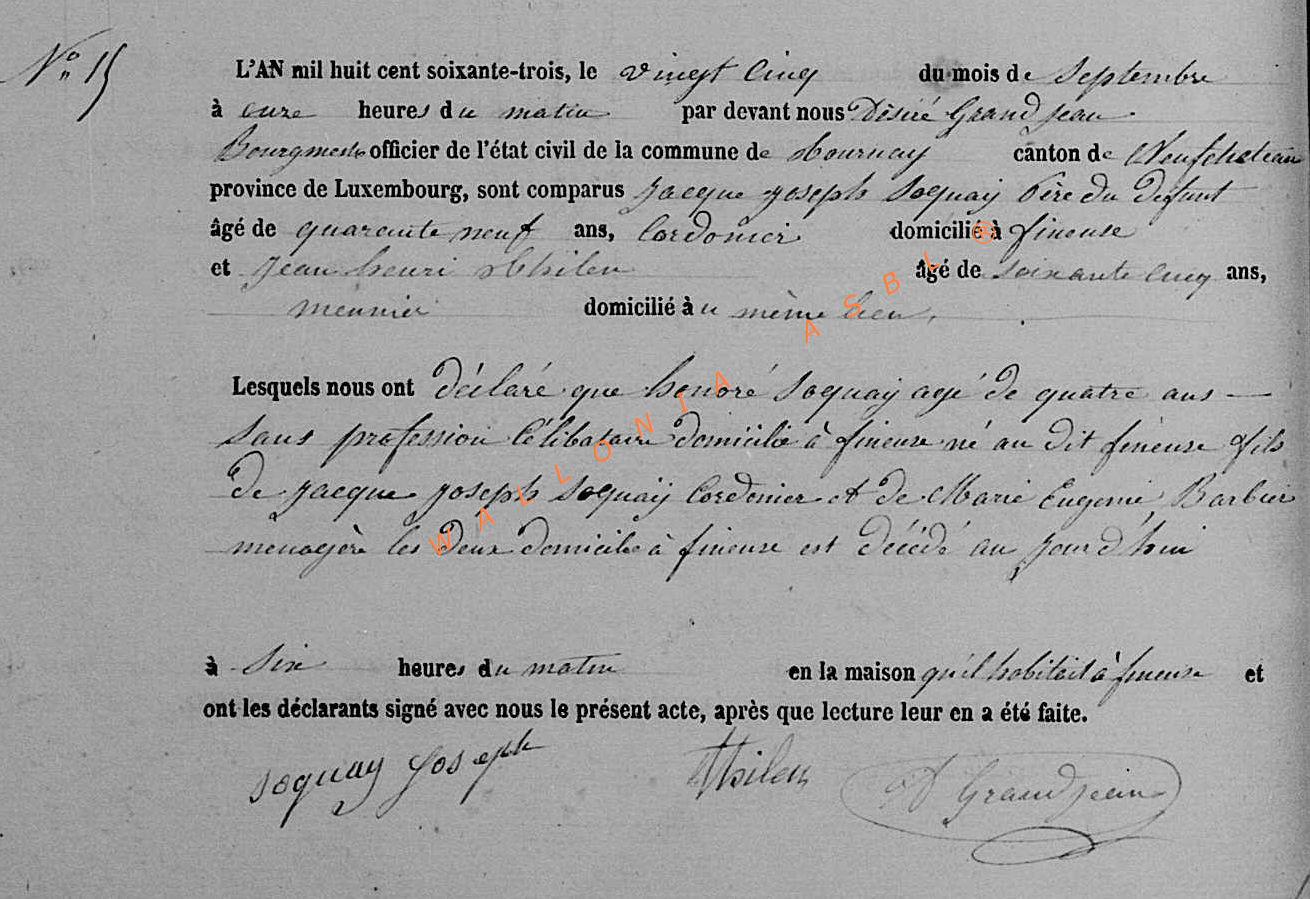 N° 15
L'AN mil huit cent soixante-trois, le vingt cinq du mois de Septembre
à onze heures du matin par devant nous Désiré Grand jean
Bourgmestre officier de l'état civil de la commune de Tournay canton de Neufchateau
province de Luxembourg, sont comparus jacque joseph Soquay Père du defunt
âgé de quarante neuf ans, Cordonier domicilié à fineuse
et jean henri Thilen âgé de soixante cinq ans,
meunier domicilié au même lieu,
Lesquels nous ont déclaré que honoré Soquay agé de quatre ans —
Sans profession Célibataire Domicilié à fineuse né au dit fineuse fils
de jacque joseph Soquaÿ Cordonier et de Marie Eugenie Barbier
menagère les deux domicilié à fineuse est décédé au jourd'hui
à Six heures du matin en la maison qu'il habitait à fineuse et
ont les déclarants signé avec nous le présent acte, après que lecture leur en a été faite.
soquay Joseph Thilen D Grandjean
WALLONIA ASBL ®